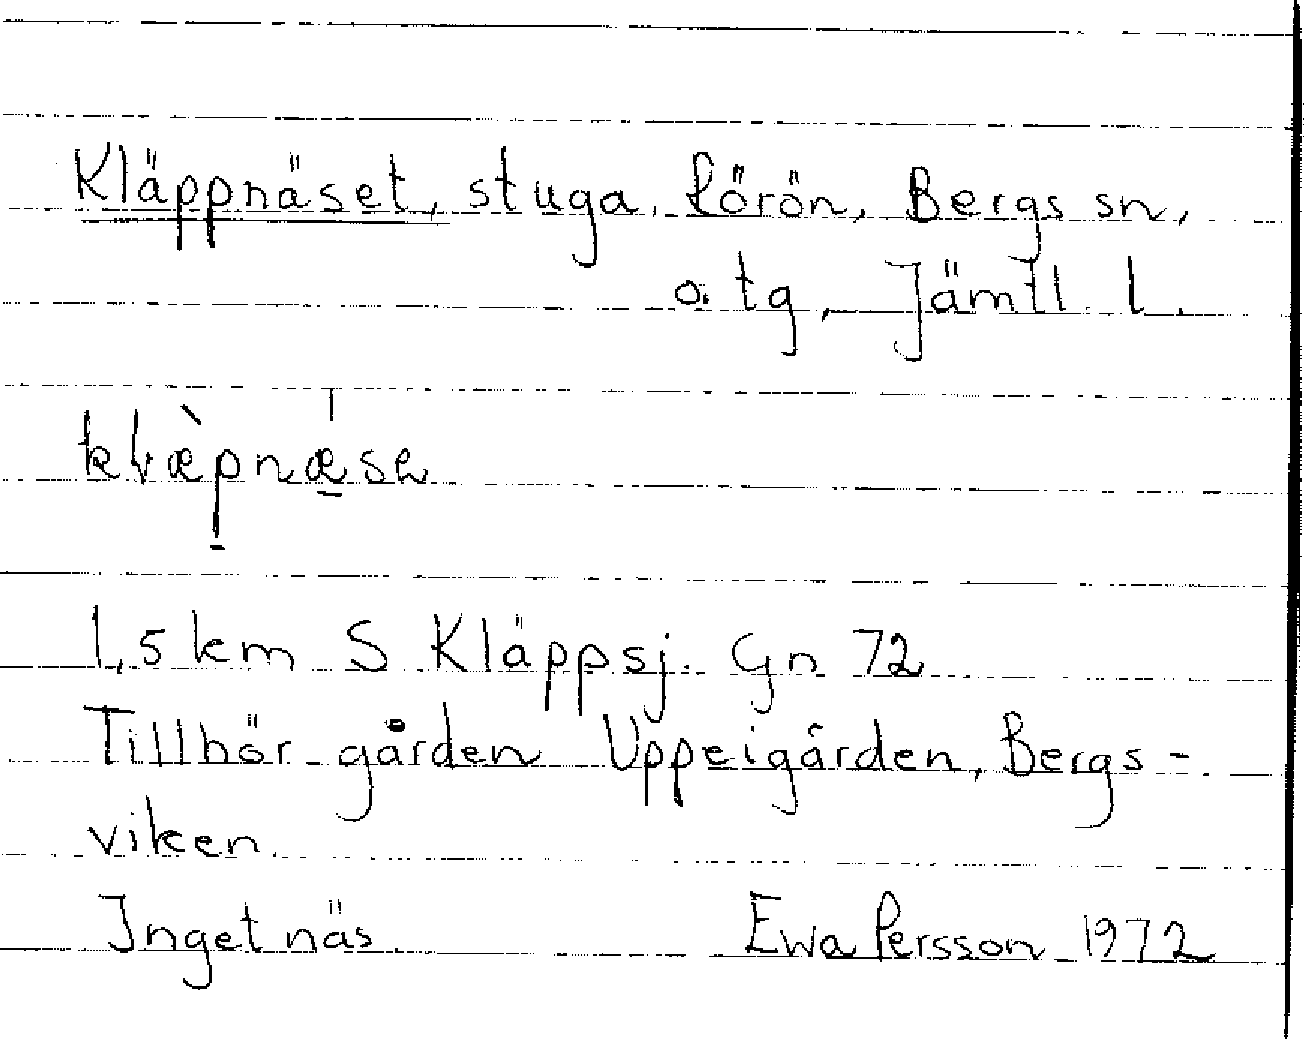 Kläppnäset, stuga, Lörön, Bergs sn,
o. tg, Jämtl. l.
klæ̀pnæse
1,5 km S Kläppsj. Gn 72
Tillhör gården Uppeigården, Bergs-
viken
Inget näs. Ewa Persson 1972